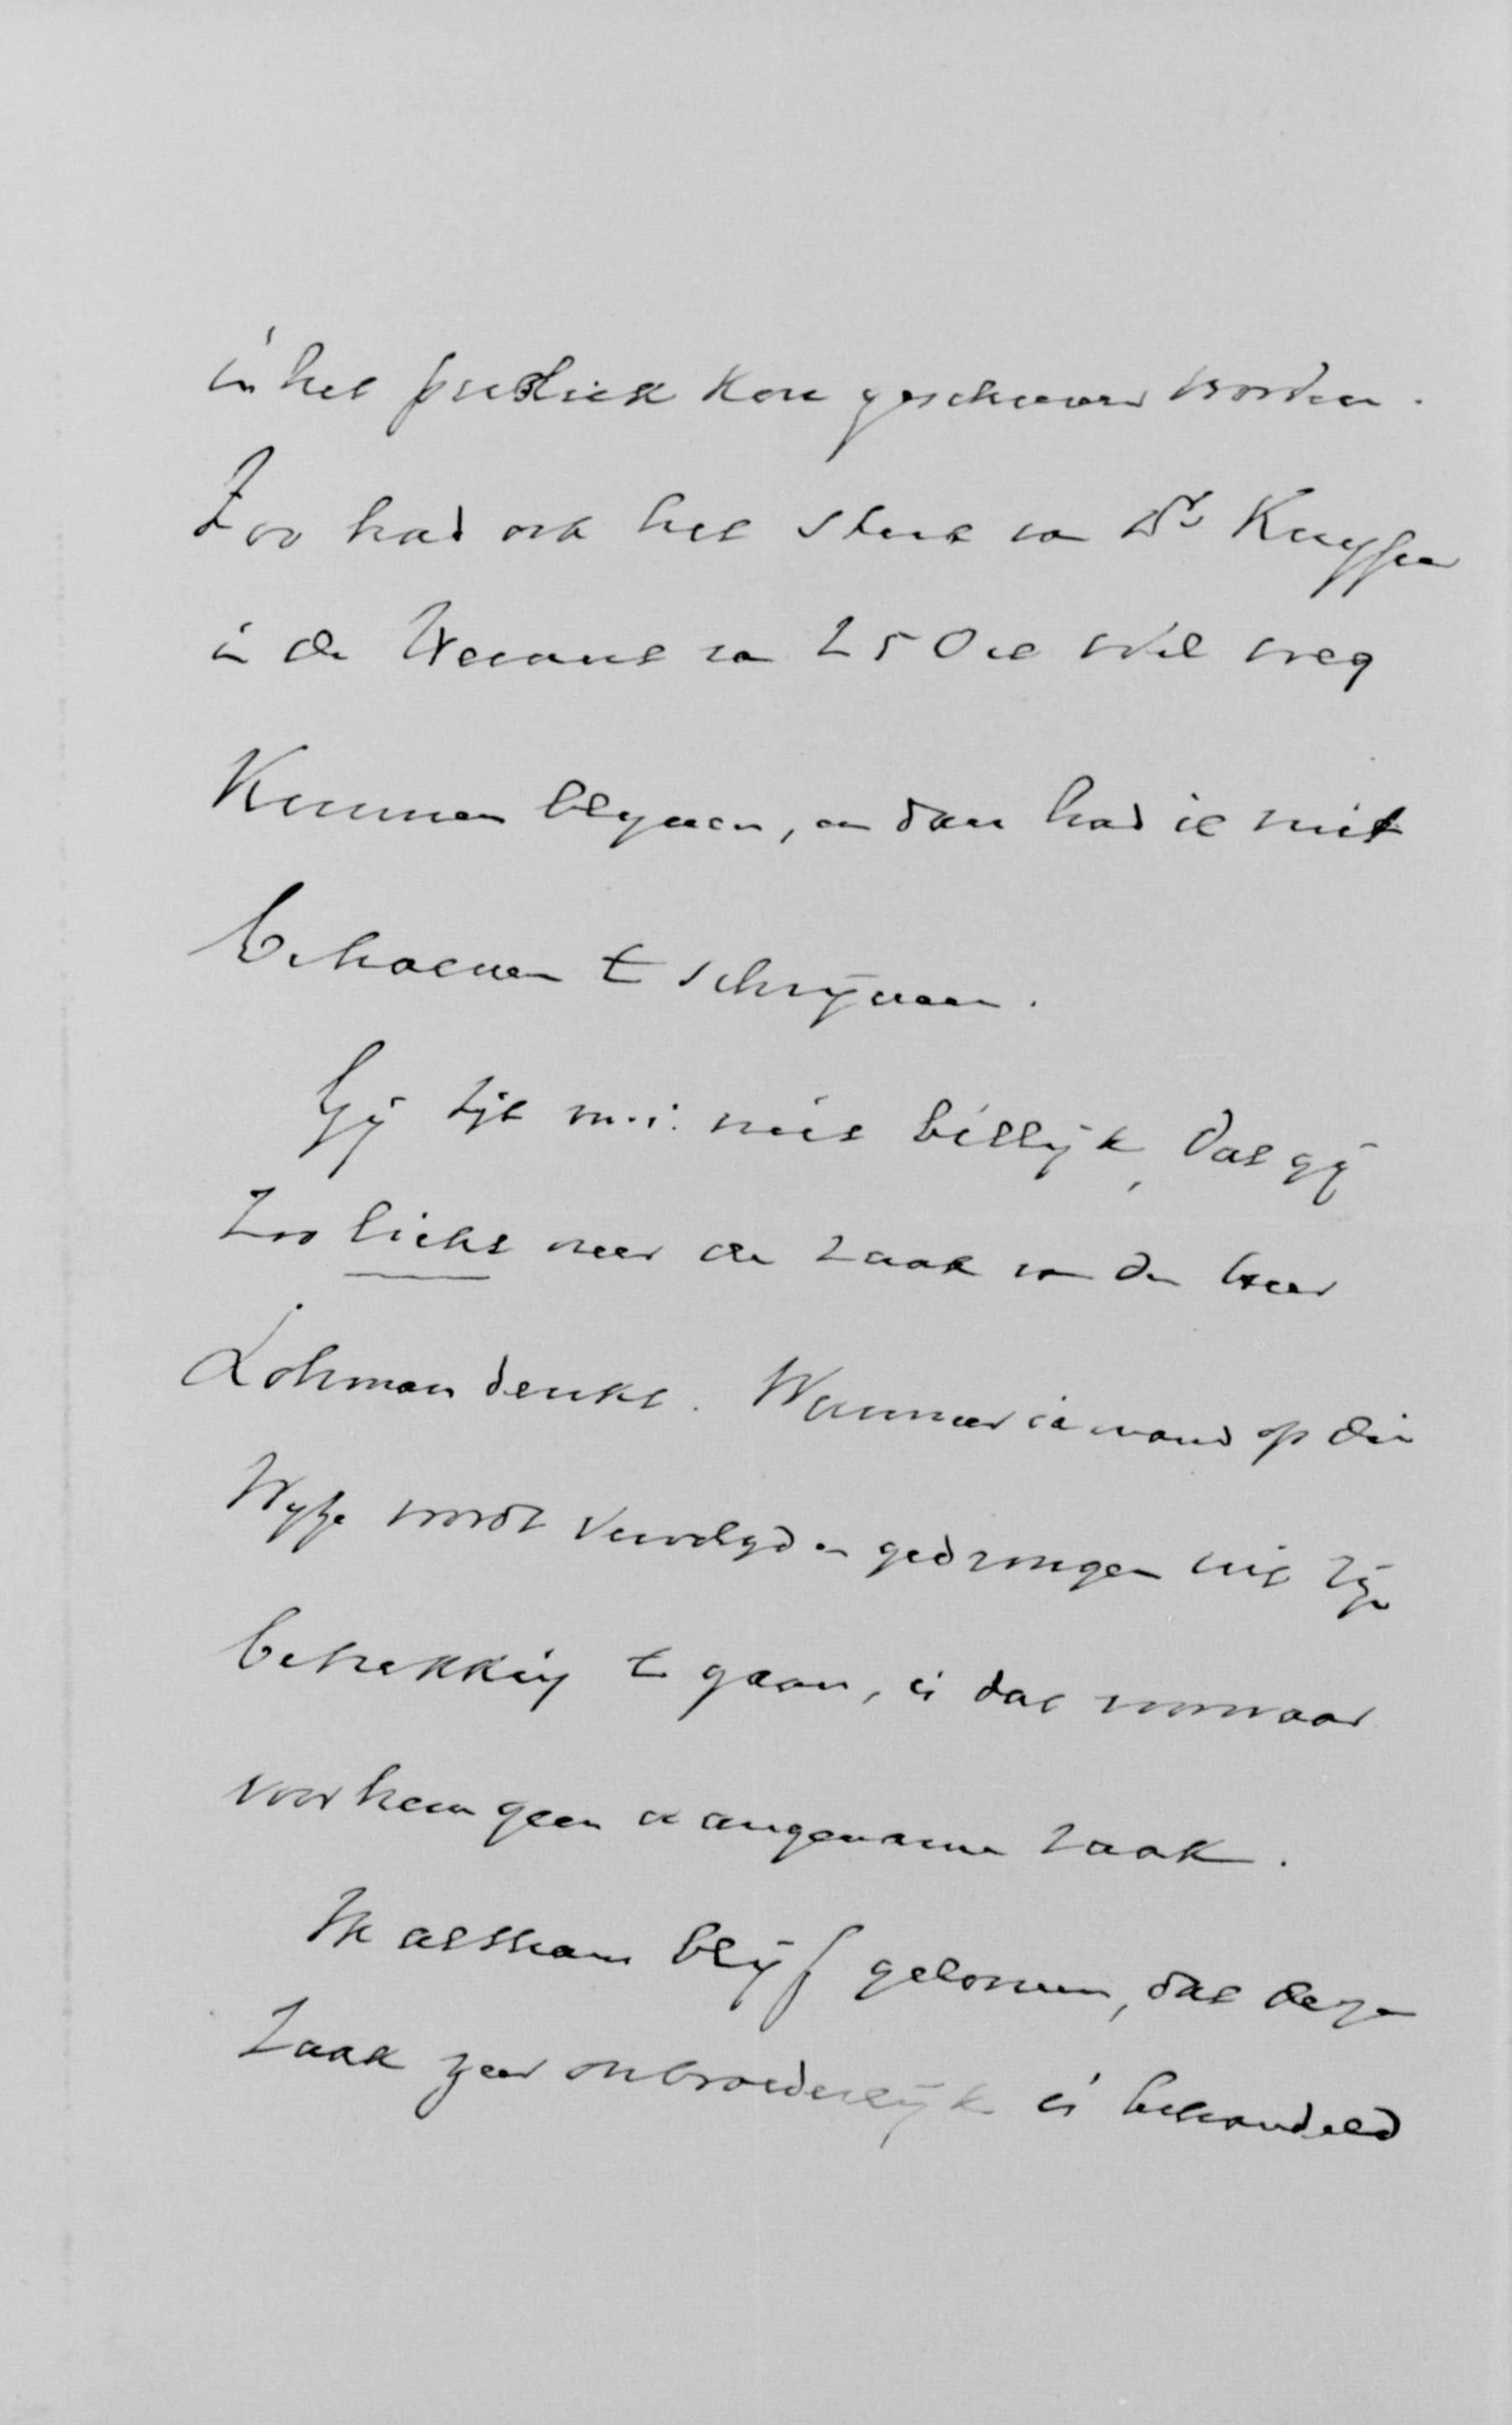 in het publiek kon geschreven worden.
Zoo had ook het stuk van Dr Kuyper
in de Heraut van 25 Oct wel weg
Kunnen blijven, en dan had ik niet
behoeven te schrijven.
Gij zijt m.i. niet billijk, dat gij
Zoo licht over de zaak van den heer
Lohman denkt. Wanneer iemand op die
Wijze wordt vervolgd en gedrongen uit zijn
betrekking te gaan, is dat voorwaar
voor hem geen aangename zaak.
Ik althans blijf gelooven, dat deze
Zaak zeer onbroederlijk is behandeld